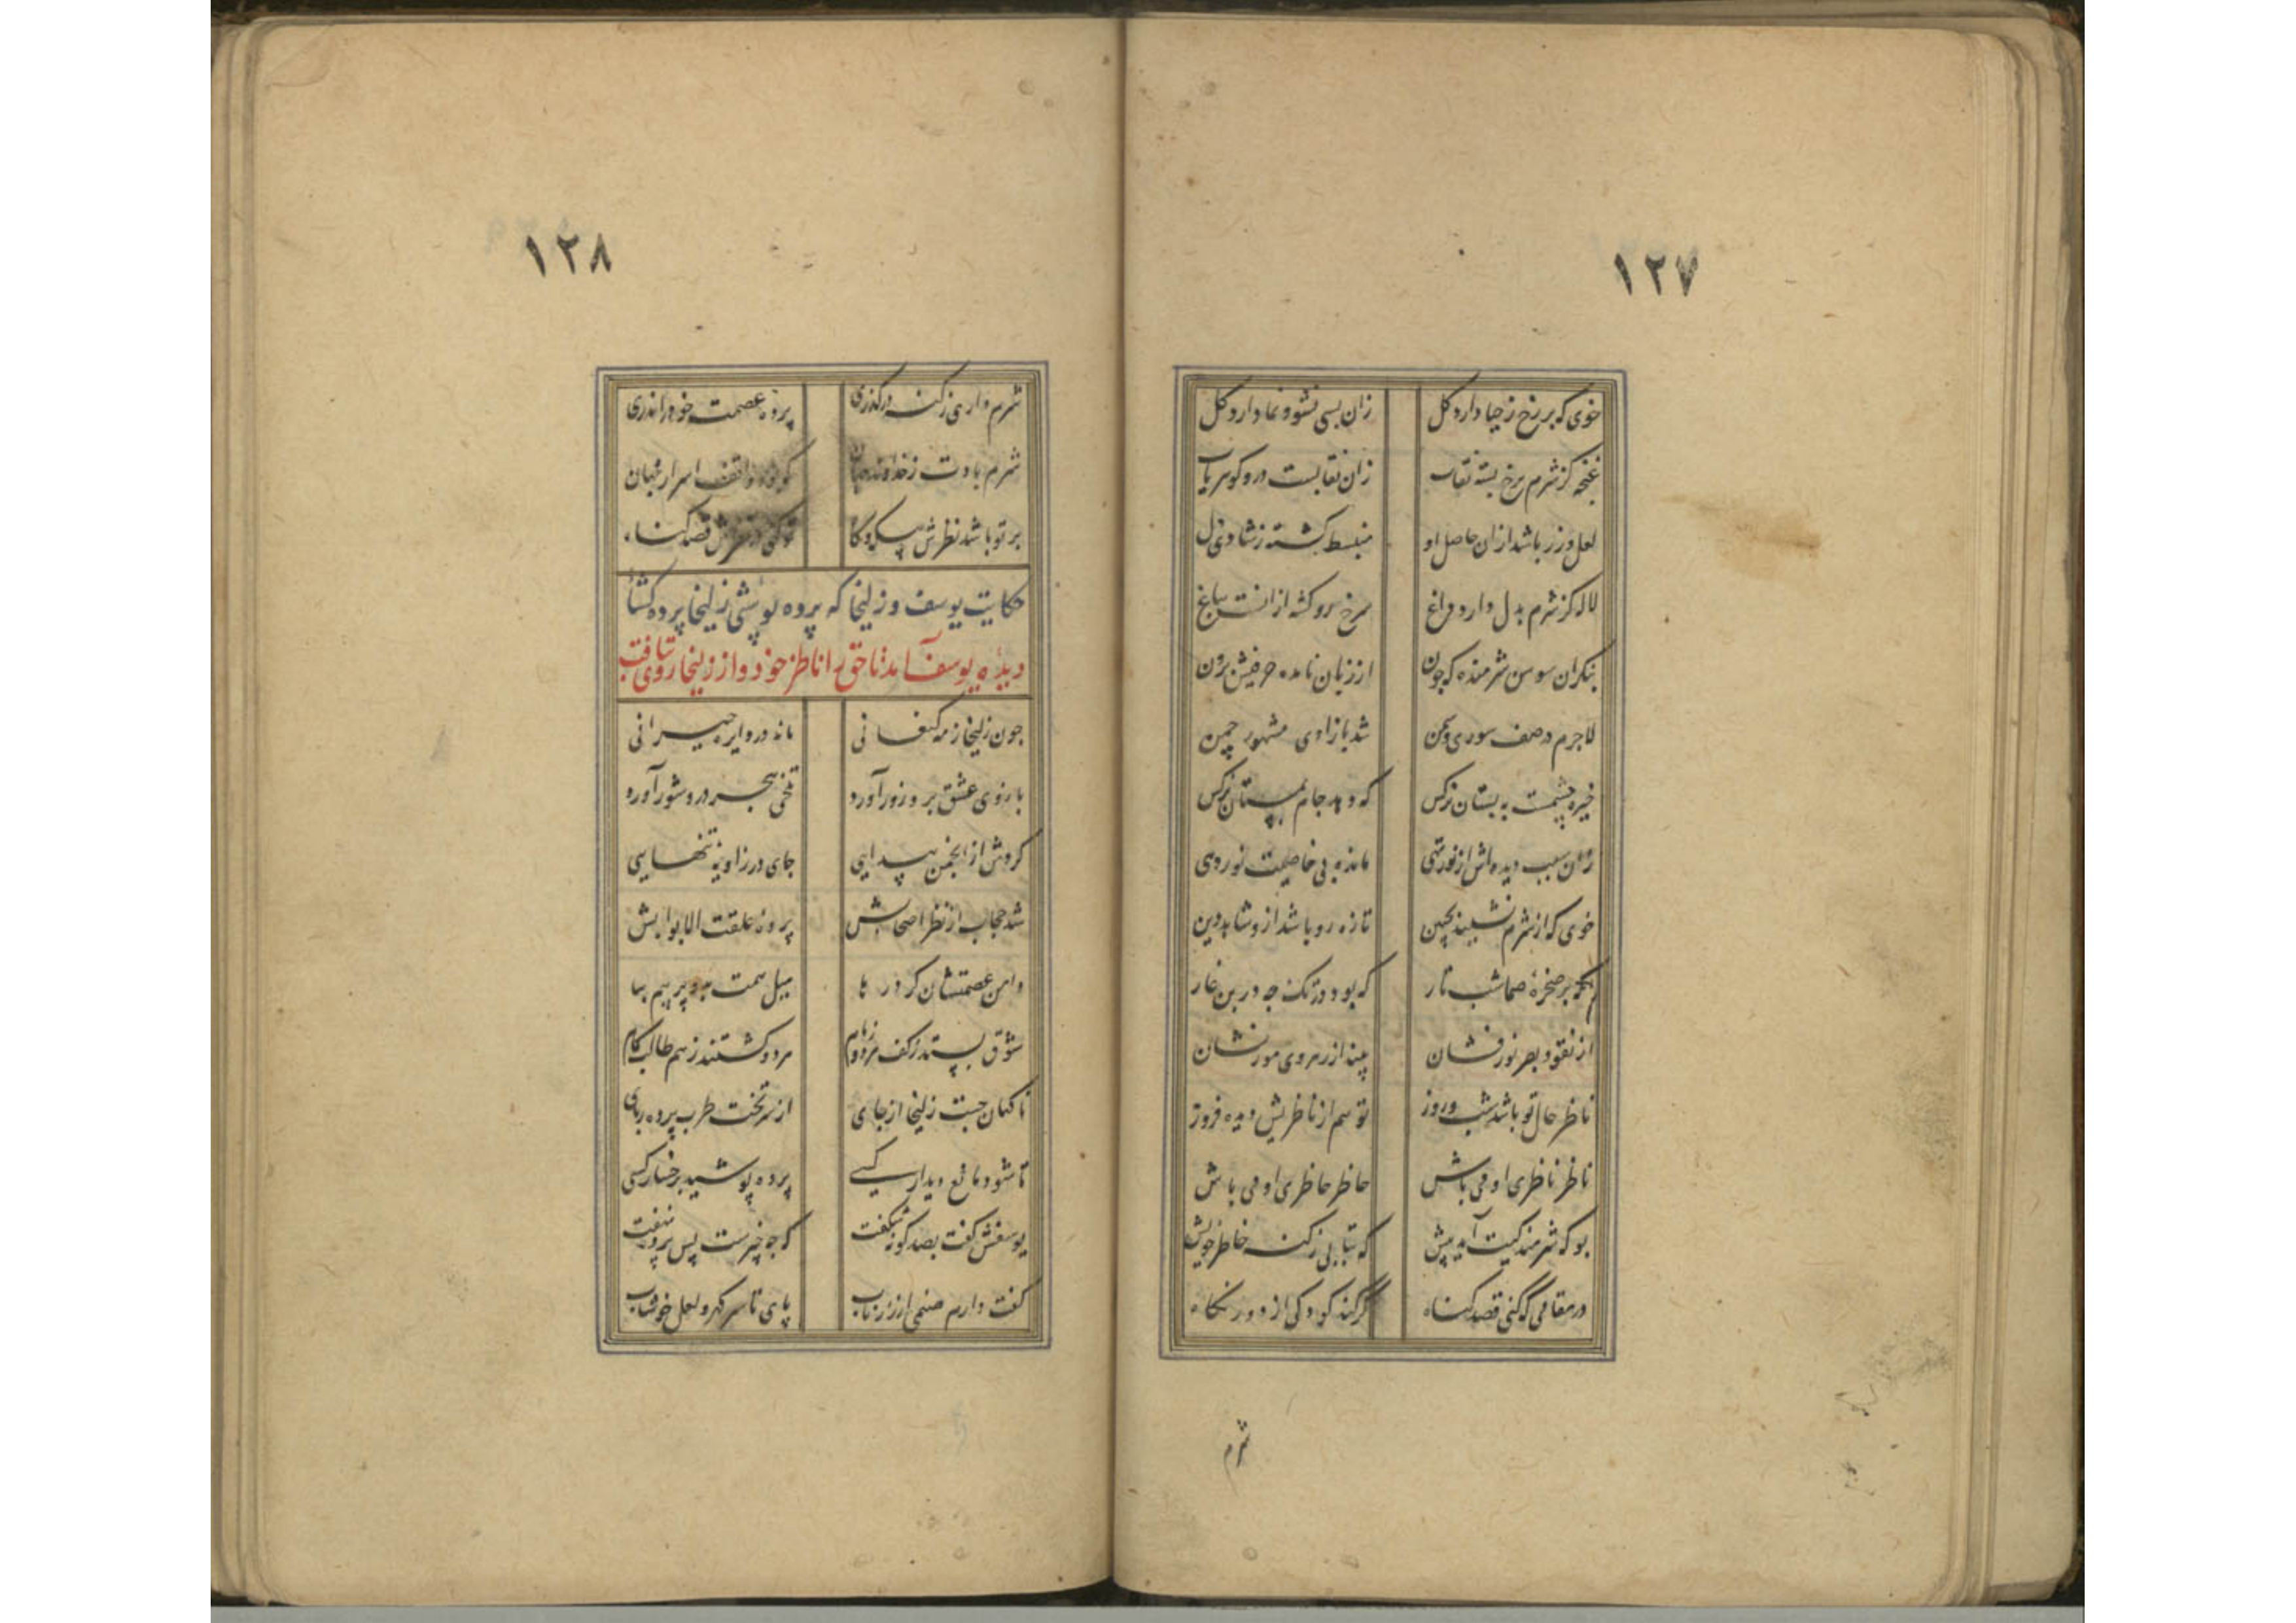 ۱۲۷
خوی که بر رخ ز حیا دارد کل زان بسی نشو و نما دارد کل
غنچه کز شرم برخ بسته نقاب زان نقابست درو کوهر یاب
لعل و زر باشد ازان حاصل او منبسط کشته ز شادی دل
لاله کز شرم بدل دارد داغ سرخ رو کشته ازانست بباغ
بنکر ان سوسن شرمنده که چون از زبان نامده حرفیش برون
لاجرم در صف سوری و سمن شد بازادی مشهور چمن
خیره چشمست به بستان نرکس که دهد جام بمستان نرکس
زان سبب دیده اش از نور تهی مانده بی خاصیت نوردهی
خوی که از شرم نشیند بجبین تازه رو باشد ازو شاهد دین
انکه بر صخره صما شب تار که بود در تک چه در بن غار
از نفوذ بصر نور فشان بیند از رهروی مور نشان
ناظر حال تو باشد شب و روز تو هم از ناظریش دیده فروز
ناظر ناظری او می باش حاظر حاظری او می باش
بو که شرمندکیت آید پیش که بتابی ز کنه خاطر خویش
در مقامی که کنی قصد کناه کر کند کودکی از دور نکاه
شرم
۱۲۸
شرم داری ز کنه در کذری پرده عصمت خود را ندری
شرم بادت ز خداوند جهان که بود واقف اسرار نهان
بر تو باشد نظرش بیکه و کاه تو کنی در نظرش قصد کناه
حکایت یوسف و زلیخا که پرده پوشی زلیخا پرده کشای
دیده یوسف آمد تا حق را ناظر خود دید و از زلیخا روی بتافت
چون زلیخا ز مه کنعانی ماند در دایره حیرانی
بازوی عشق برو زور آورد تلخی هجر درو شور آورد
کردش از انجمن پیدایی جای در زاویه تنهایی
شد حجاب از نظر اصحابش پرده غلقت الابوابش
دامن عصمتشان کرد رها میل همت به و پر بیم بها
شوق بستد ز کف هر دو زمام هر دو کشتند ز هم طالب کام
ناکهان جست زلیخا از جای از سر تخت طرب پرده ربای
تا شود مانع دیدار کسی پرده پوشید بر خسار کسی
یوسفش کفت بصد کونه شکفت که چه چیزست پس پرده نهفت
کفت دارم صنمی از زر ناب پای تا سر کهر و لعل خوشاب